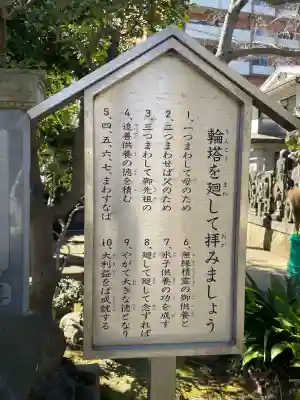 輪塔を廻して拝みましょう
1、一つまわして母のため
2、二つまわせば父のため
3、三つまわして御先祖の
4、追善供養の徳を積む
5、四、五、六、七、まわすなば
6、無縁精霊の御供養と
7、水子供養の功を成す
8、廻して廻して念ずれば
9、やがて大きな徳となり
10、大利益をば成就する